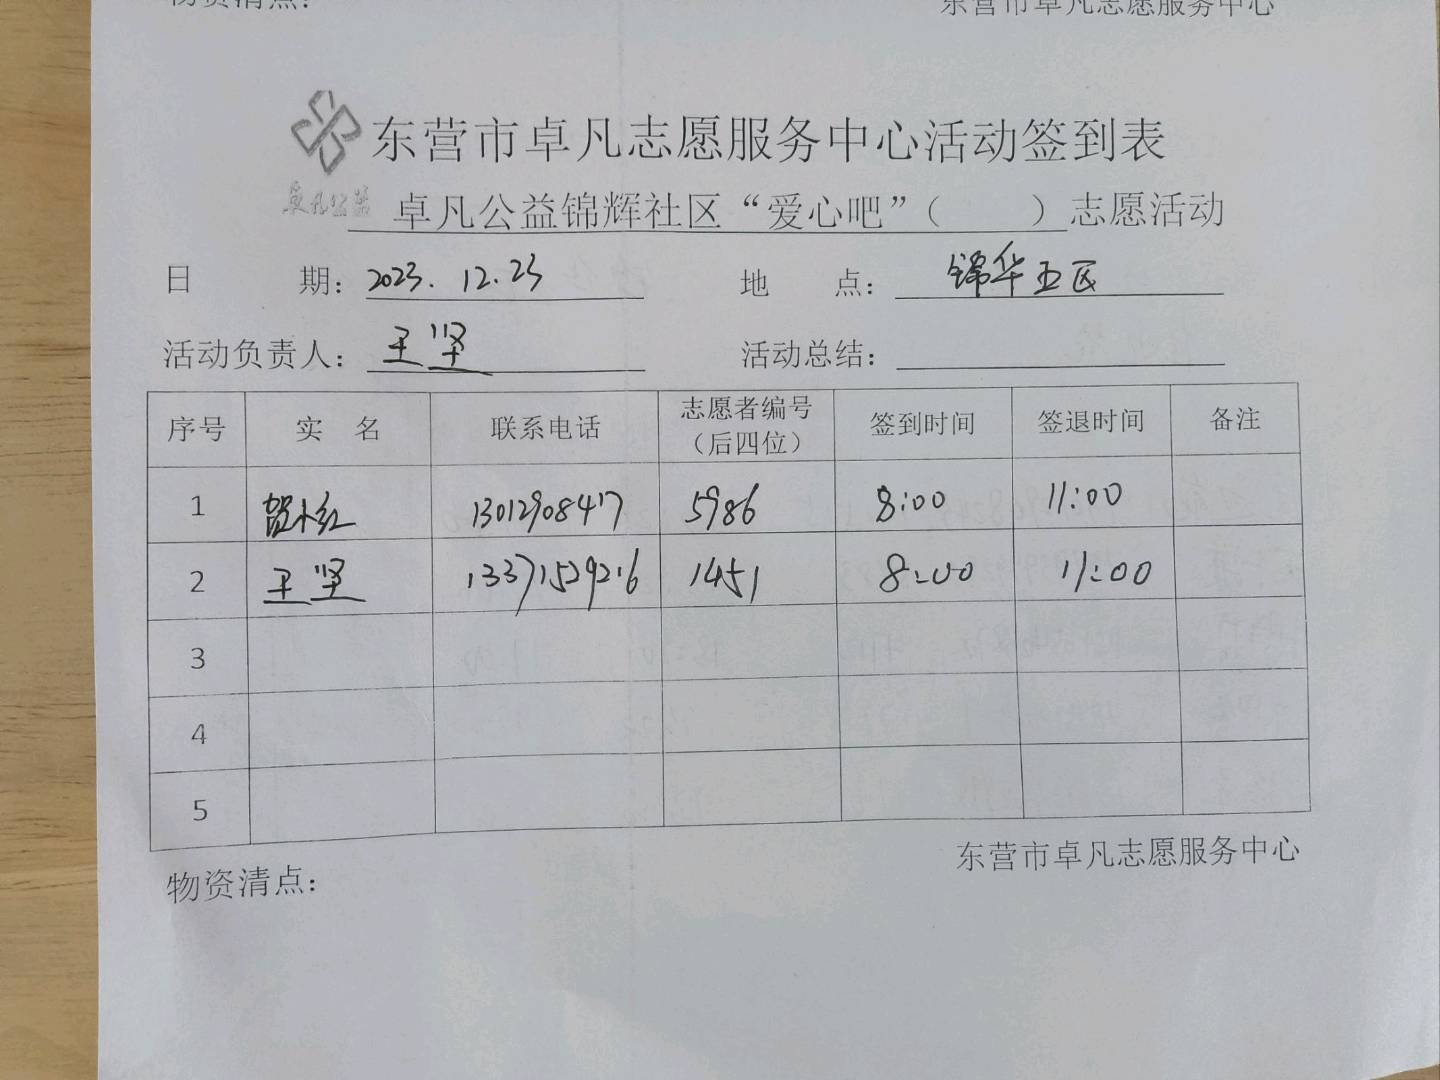 物资清点：
东营市卓凡志愿服务中心
东营市卓凡志愿服务中心活动签到表
卓凡公益
卓凡公益锦辉社区“爱心吧”（ ）志愿活动
日 期：2023.12.23 地 点：锦华五区
活动负责人：王坚 活动总结：
序号 实 名 联系电话 志愿者编号（后四位） 签到时间 签退时间 备注
1 贺小红 13012908417 5986 8:00 11:00
2 王坚 13371529216 1451 8:00 11:00
3
4
5
东营市卓凡志愿服务中心
物资清点：